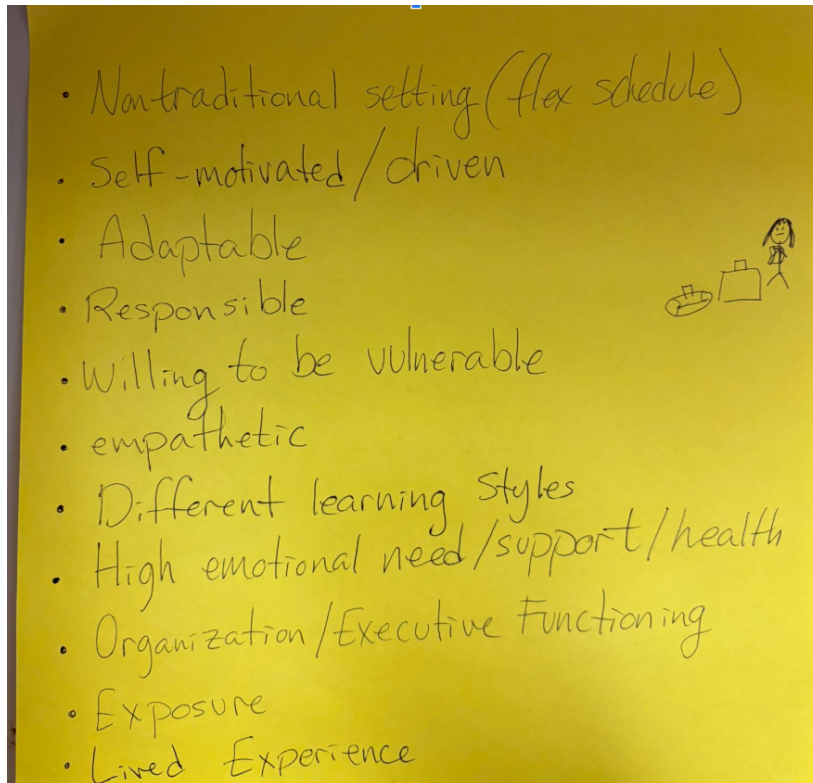 • Nontraditional setting (flex schedule)
• Self-motivated/driven
• Adaptable
• Responsible
• Willing to be vulnerable
• empathetic
• Different learning styles
• High emotional need/support/health
• Organization/Executive Functioning
• Exposure
• Lived Experience